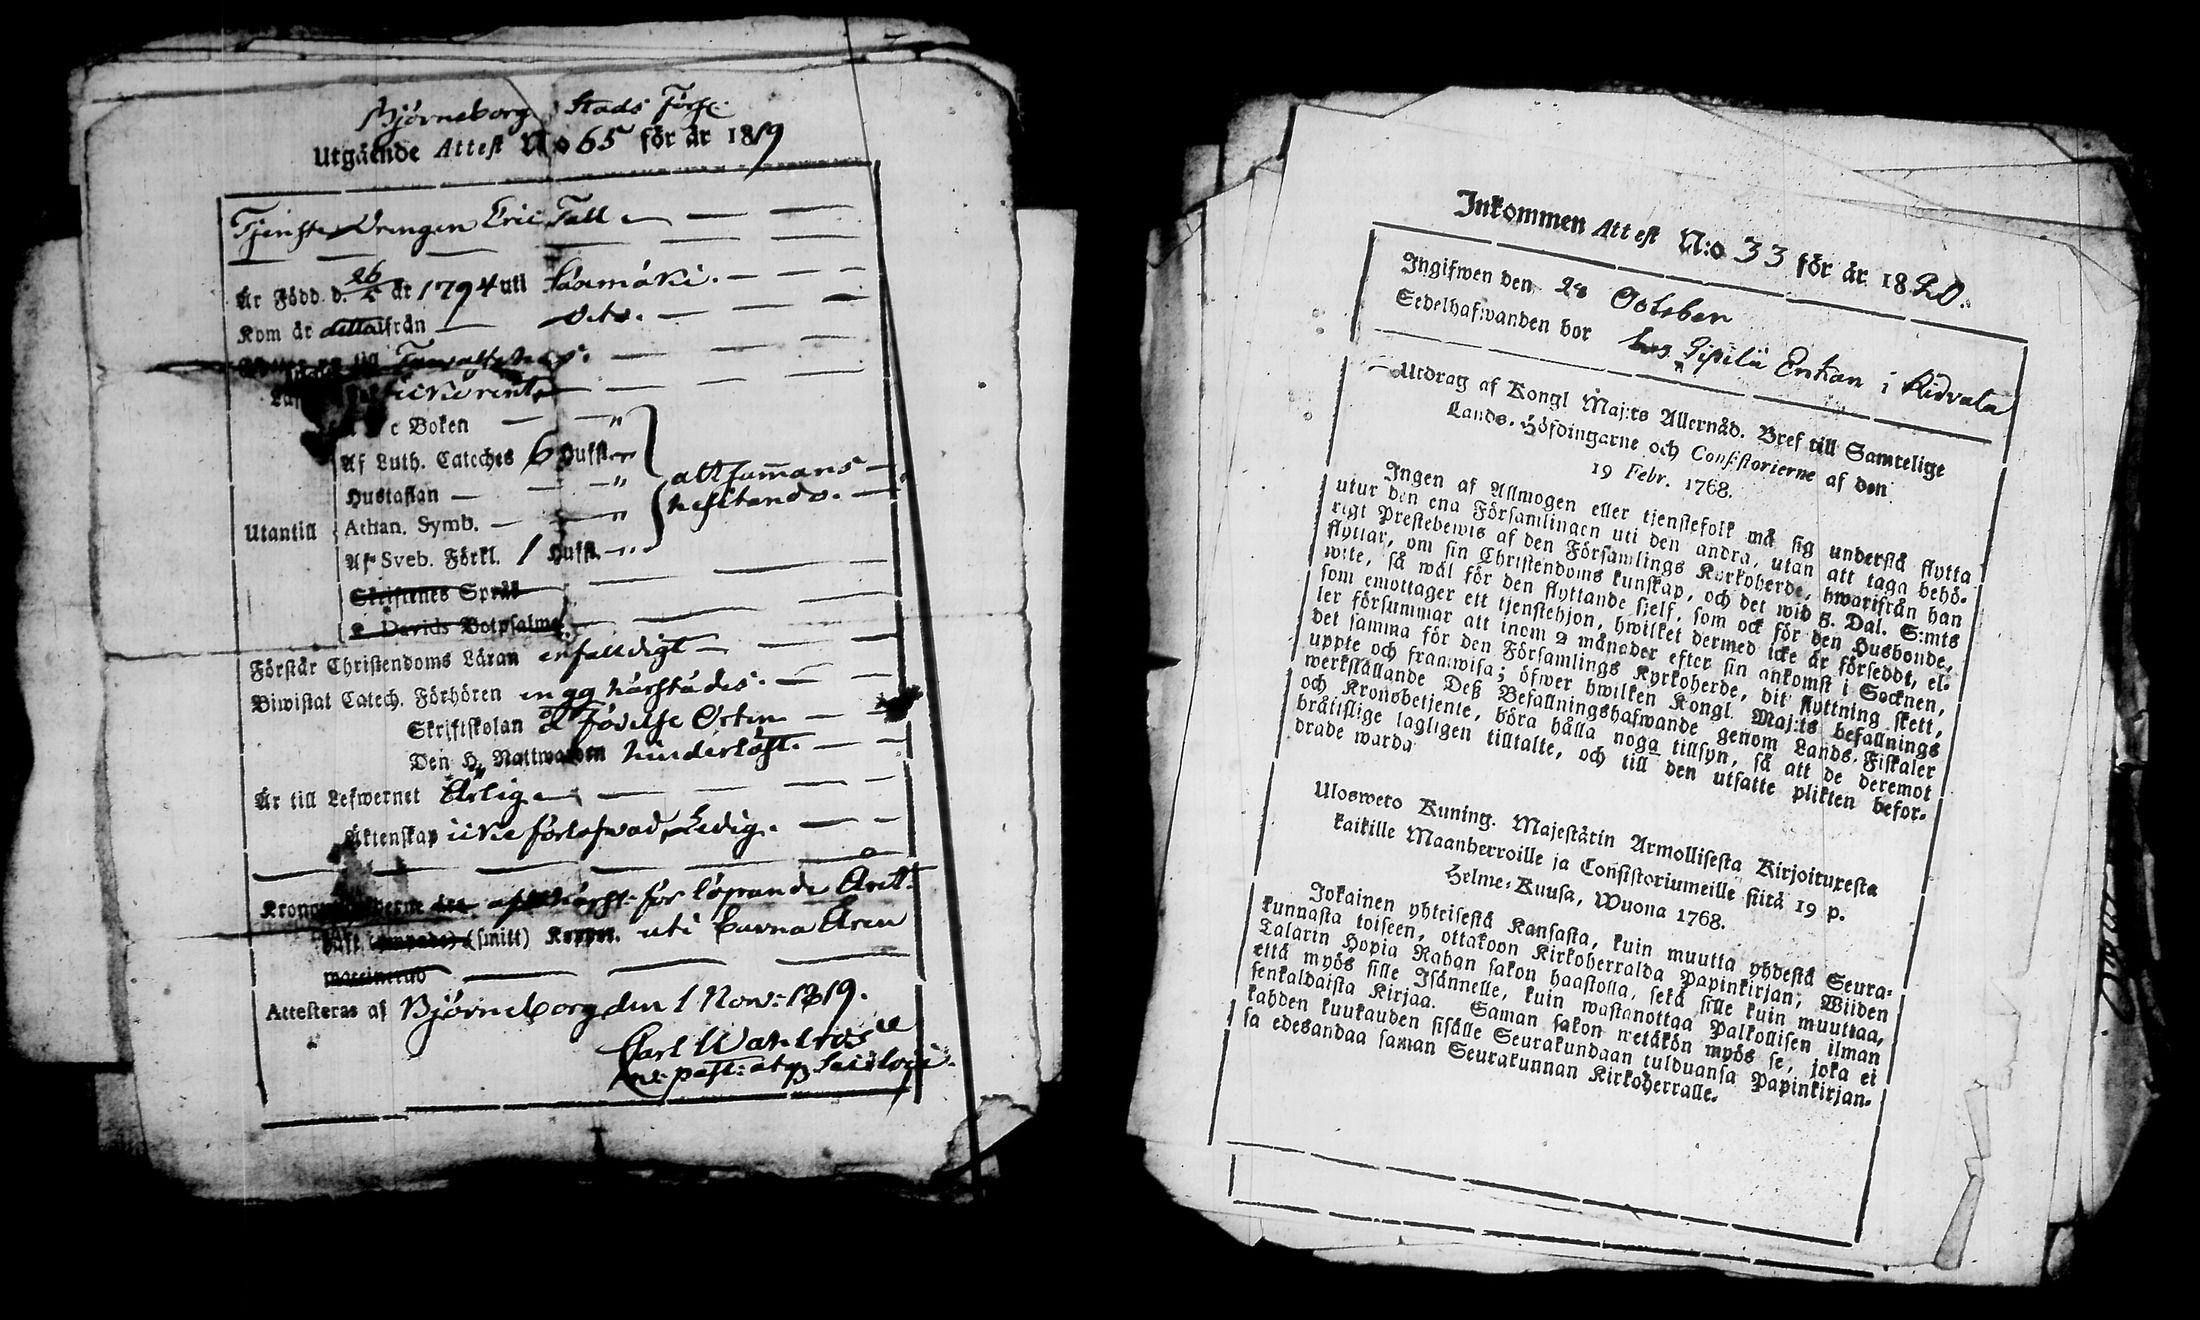 Björneborg Stads Förs:
Utgående Attest No 65 för år 1819
Tjenste Drengen Eric Tall
År Född d. 26/5 år 1794 uti Säxmäki.
Kom år detta ifrån Dito.
till Tawastehus.
icke rent
c Boken "
Af Luth. Cateches 6 Hufst. "
Hustaflan "
allt sam̅ans
hesitendo.
Utantill
Athan. Symb. "
Af Sveb. Förkl. 1 Hufst. "
Skriftenes Språk
K. Davids Botpsalme
Förstår Christendoms Läran enfalldigt
Biwistat Catech. Förhören en gg härstädes.
Skriftskolan å Födelse Orten
Den H. Nattwarden hinderlöst.
År till Lefwernet Ärlig
Äktenskap icke förlofwad, Ledig.
Krono för löpande Året.
haft (smitt) Koppor. uti barna Åren
vaccinerad
Attesteras af Björneborg den 1 Nov: 1819.
Carl Wahlroos
Inkommen Attest N:o 33 för år 1820.
Ingifwen den 28 October
Sedelhafwanden bor hos Sipilä Enkan i Ridvala
Utdrag af Kongl Maj:ts Allernåd. Bref till Samtelige
Lands-Höfdingarne och Consistorierne af den
19 Febr. 1768.
Ingen af Allmogen eller tjenstefolk må sig understå flytta
utur den ena Församlingen uti den andra, utan att taga behö-
rigt Prestebewis af den Församlings Kyrkoherde, hwarifrån han
flyttar, om sin Christendoms kunskap, och det wid 5. Dal. S:mts
wite, så wäl för den flyttande sjelf, som ock för den Husbonde,
som emottager ett tjenstehjon, hwilket dermed icke är förseddt, el-
ler försummar att inom 2 månader efter sin ankomst i Socknen,
det samma för den Församlings Kyrkoherde, dit flyttning skett,
uppte och framwisa; öfwer hwilken Kongl. Maj:ts befallnings
werkställande Deß Befallningshafwande genom Lands-Fiskaler
och Kronobetjente, böra hålla noga tillsyn, så att de deremot
bråtislige lagligen tilltalte, och till den utsatte plikten befor-
drade warda
Uloswero Kuning. Majestärin Armollisesta Kirjoituxesta
kaikille Maanherroille ja Consistoriumeille siitä 19 p.
Helme-Kuusa, Wuona 1768.
Jokainen yhteisestä Kansasta, kuin muutta yhdestä Seura-
kunnasta toiseen, ottakoon Kirkoherralda Papinkirjan; Wiiden
Talarin Hopia Rahan sakon haastolla, sekä sille kuin muuttaa,
että myös sille Isännelle, kuin wastanottaa Palkollisen ilman
senkaldaista Kirjaa. Saman sakon wetäkön myös se, joka ei
kahden kuukauden sisälle Seurakundaan tulduansa Papinkirjan-
sa edesandaa saman Seurakunnan Kirkoherralle.